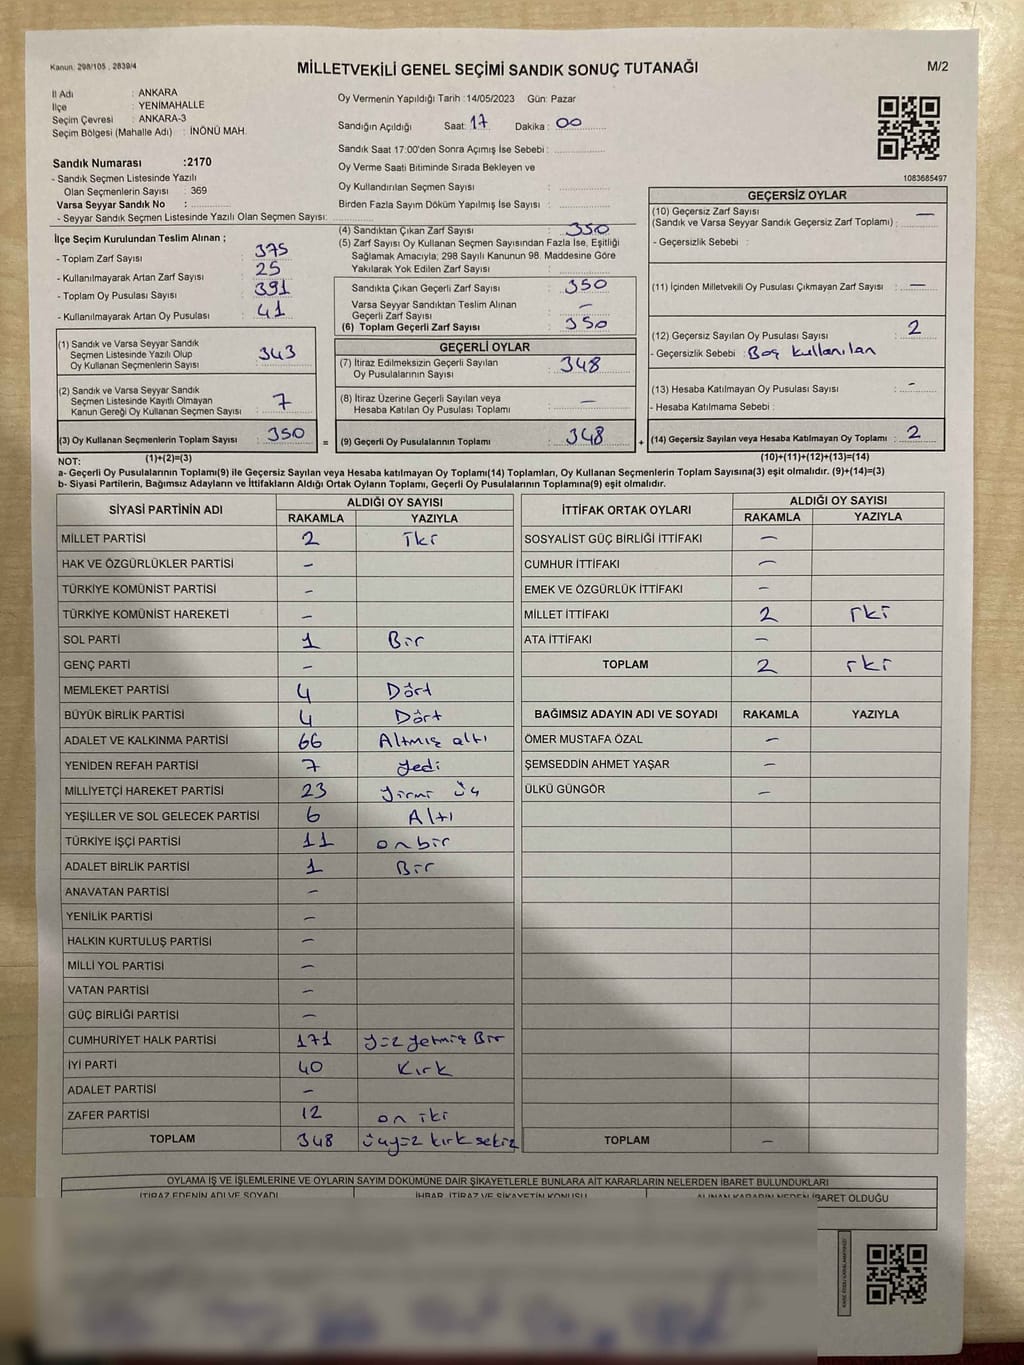 Kanun. 298/105 , 2839/4
MİLLETVEKİLİ GENEL SEÇİMİ SANDIK SONUÇ TUTANAĞI
M/2
İl Adı : ANKARA
İlçe : YENİMAHALLE
Seçim Çevresi : ANKARA-3
Seçim Bölgesi (Mahalle Adı) : İNÖNÜ MAH.
Sandık Numarası :2170
- Sandık Seçmen Listesinde Yazılı
Olan Seçmenlerin Sayısı : 369
Varsa Seyyar Sandık No :
- Seyyar Sandık Seçmen Listesinde Yazılı Olan Seçmen Sayısı:
Oy Vermenin Yapıldığı Tarih :14/05/2023 Gün: Pazar
Sandığın Açıldığı Saat: 17 Dakika : 00
Sandık Saat 17:00'den Sonra Açımış İse Sebebi :
Oy Verme Saati Bitiminde Sırada Bekleyen ve
Oy Kullandırılan Seçmen Sayısı :
Birden Fazla Sayım Döküm Yapılmış İse Sayısı :
1083685497
İlçe Seçim Kurulundan Teslim Alınan ;
- Toplam Zarf Sayısı : 375
- Kullanılmayarak Artan Zarf Sayısı : 25
- Toplam Oy Pusulası Sayısı : 391
- Kullanılmayarak Artan Oy Pusulası : 41
(1) Sandık ve Varsa Seyyar Sandık
Seçmen Listesinde Yazılı Olup
Oy Kullanan Seçmenlerin Sayısı : 343
(2) Sandık ve Varsa Seyyar Sandık
Seçmen Listesinde Kayıtlı Olmayan
Kanun Gereği Oy Kullanan Seçmen Sayısı : 7
(3) Oy Kullanan Seçmenlerin Toplam Sayısı : 350 =
(1)+(2)=(3)
(4) Sandıktan Çıkan Zarf Sayısı : 350
(5) Zarf Sayısı Oy Kullanan Seçmen Sayısından Fazla İse, Eşitliği
Sağlamak Amacıyla; 298 Sayılı Kanunun 98. Maddesine Göre
Yakılarak Yok Edilen Zarf Sayısı :
Sandıkta Çıkan Geçerli Zarf Sayısı : 350
Varsa Seyyar Sandıktan Teslim Alınan
Geçerli Zarf Sayısı : —
(6) Toplam Geçerli Zarf Sayısı : 350
GEÇERLİ OYLAR
(7) İtiraz Edilmeksizin Geçerli Sayılan
Oy Pusulalarının Sayısı : 348
(8) İtiraz Üzerine Geçerli Sayılan veya
Hesaba Katılan Oy Pusulası Toplamı : —
(9) Geçerli Oy Pusulalarının Toplamı : 348 +
GEÇERSİZ OYLAR
(10) Geçersiz Zarf Sayısı —
(Sandık ve Varsa Seyyar Sandık Geçersiz Zarf Toplamı) :
- Geçersizlik Sebebi :
(11) İçinden Milletvekili Oy Pusulası Çıkmayan Zarf Sayısı : —
(12) Geçersiz Sayılan Oy Pusulası Sayısı : 2
- Geçersizlik Sebebi : Boş kullanılan
(13) Hesaba Katılmayan Oy Pusulası Sayısı : -
- Hesaba Katılmama Sebebi :
(14) Geçersiz Sayılan veya Hesaba Katılmayan Oy Toplamı : 2
(10)+(11)+(12)+(13)=(14)
NOT:
a- Geçerli Oy Pusulalarının Toplamı(9) ile Geçersiz Sayılan veya Hesaba katılmayan Oy Toplamı(14) Toplamları, Oy Kullanan Seçmenlerin Toplam Sayısına(3) eşit olmalıdır. (9)+(14)=(3)
b- Siyasi Partilerin, Bağımsız Adayların ve İttifakların Aldığı Ortak Oyların Toplamı, Geçerli Oy Pusulalarının Toplamına(9) eşit olmalıdır.
SİYASİ PARTİNİN ADI ALDIĞI OY SAYISI
RAKAMLA YAZIYLA
MİLLET PARTİSİ 2 İki
HAK VE ÖZGÜRLÜKLER PARTİSİ —
TÜRKİYE KOMÜNİST PARTİSİ —
TÜRKİYE KOMÜNİST HAREKETİ —
SOL PARTİ 1 Bir
GENÇ PARTİ —
MEMLEKET PARTİSİ 4 Dört
BÜYÜK BİRLİK PARTİSİ 4 Dört
ADALET VE KALKINMA PARTİSİ 66 Altmış altı
YENİDEN REFAH PARTİSİ 7 yedi
MİLLİYETÇİ HAREKET PARTİSİ 23 yirmi üç
YEŞİLLER VE SOL GELECEK PARTİSİ 6 Altı
TÜRKİYE İŞÇİ PARTİSİ 11 onbir
ADALET BİRLİK PARTİSİ 1 Bir
ANAVATAN PARTİSİ —
YENİLİK PARTİSİ —
HALKIN KURTULUŞ PARTİSİ —
MİLLİ YOL PARTİSİ —
VATAN PARTİSİ —
GÜÇ BİRLİĞİ PARTİSİ —
CUMHURİYET HALK PARTİSİ 171 yüz yetmiş Bir
İYİ PARTİ 40 Kırk
ADALET PARTİSİ —
ZAFER PARTİSİ 12 on iki
TOPLAM 348 üçyüz kırk sekiz
İTTİFAK ORTAK OYLARI ALDIĞI OY SAYISI
RAKAMLA YAZIYLA
SOSYALİST GÜÇ BİRLİĞİ İTTİFAKI —
CUMHUR İTTİFAKI —
EMEK VE ÖZGÜRLÜK İTTİFAKI —
MİLLET İTTİFAKI 2 iki
ATA İTTİFAKI —
TOPLAM 2 iki
BAĞIMSIZ ADAYIN ADI VE SOYADI RAKAMLA YAZIYLA
ÖMER MUSTAFA ÖZAL —
ŞEMSEDDİN AHMET YAŞAR —
ÜLKÜ GÜNGÖR —
TOPLAM —
OYLAMA İŞ VE İŞLEMLERİNE VE OYLARIN SAYIM DÖKÜMÜNE DAİR ŞİKAYETLERLE BUNLARA AİT KARARLARIN NELERDEN İBARET BULUNDUKLARI
İTİRAZ EDENİN ADI VE SOYADI İHBAR, İTİRAZ VE ŞİKAYETİN KONUSU ALINAN KARARIN NEDEN İBARET OLDUĞU